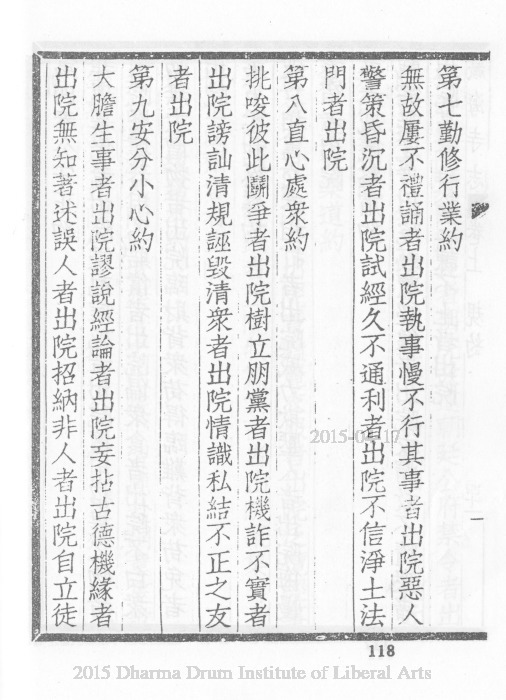 第七勤修行業約
無故屢不禮誦者出院執事慢不行其事者出院惡人
警策昏沉者出院試經久不通利者出院不信淨土法
門者出院
第八直心處衆約
挑唆彼此鬬爭者出院樹立朋黨者出院機詐不實者
出院謗訕清規誣毀清衆者出院情識私結不正之友
者出院
第九安分小心約
大膽生事者出院謬說經論者出院妄拈古德機緣者
出院無知著述誤人者出院招納非人者出院自立徒
118
2015 Dharma Drum Institute of Liberal Arts